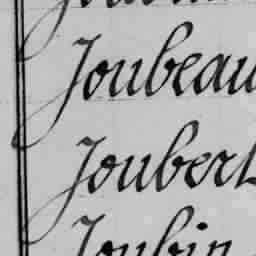 Joubeau
Joubert
Joubin